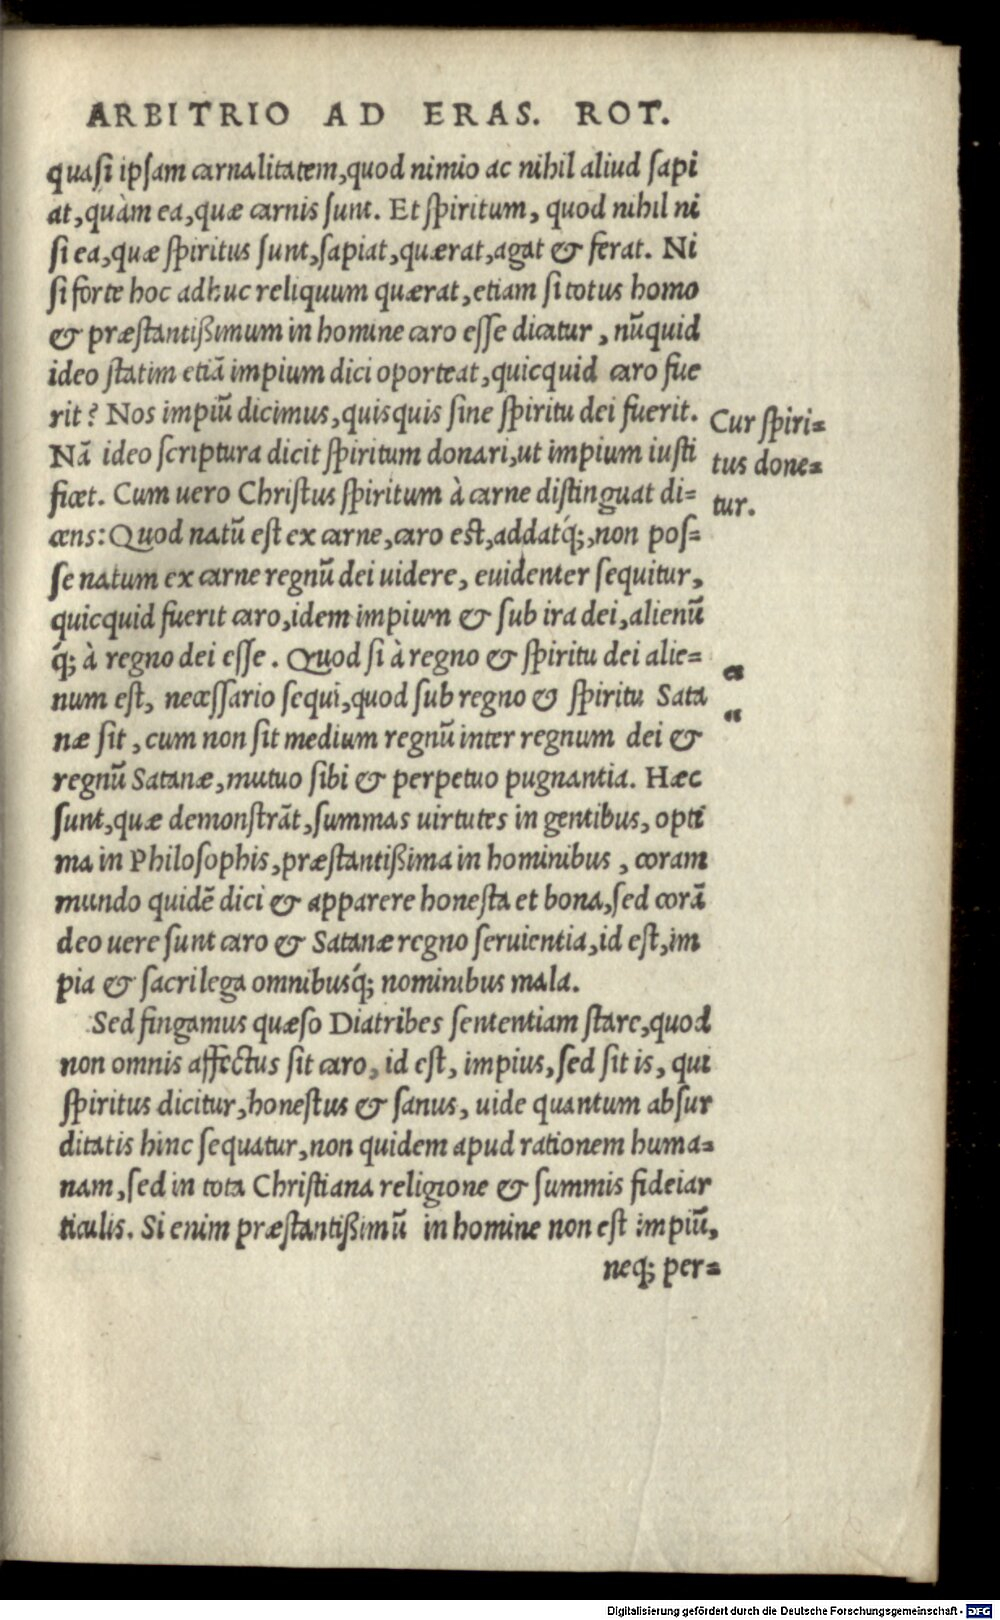 ARBITRIO AD ERAS. ROT.
quaſi ipſam carnalitatem,quod nimio ac nihil aliud ſapi
at,quàm ea,quæ carnis ſunt. Et ſpiritum, quod nihil ni
ſi ea,quæ ſpiritus ſunt,ſapiat,quærat,agat & ferat. Ni
ſi forte hoc adhuc reliquum quærat,etiam ſi totus homo
& præſtantißimum in homine caro eſſe dicatur, nũquid
ideo ſtatim etiã impium dici oporteat,quicquid caro fue
rit? Nos impiũ dicimus,quisquis ſine ſpiritu dei fuerit.
Nã ideo ſcriptura dicit ſpiritum donari,ut impium iuſti
ficet. Cum uero Chriſtus ſpiritum à carne diſtinguat di=
cens: Quod natũ eſt ex carne,caro eſt,addatq́;,non poſ=
ſe natum ex carne regnũ dei uidere, euidenter ſequitur,
quicquid fuerit caro,idem impium & ſub ira dei,alienũ
q́; à regno dei eſſe. Quod ſi à regno & ſpiritu dei alie=
num eſt, neceſſario ſequi,quod ſub regno & ſpiritu Sata
næ ſit, cum non ſit medium regnũ inter regnum dei &
regnũ Satanæ,mutuo ſibi & perpetuo pugnantia. Hæc
ſunt,quæ demonſtrãt,ſummas uirtutes in gentibus, opti
ma in Philoſophis,præſtantißima in hominibus, coram
mundo quidẽ dici & apparere honeſta et bona,ſed corã
deo uere ſunt caro & Satanæ regno ſeruientia,id eſt,im
pia & ſacrilega omnibusq́; nominibus mala.
Sed fingamus quæſo Diatribes ſententiam ſtare,quod
non omnis affectus ſit caro, id eſt, impius, ſed ſit is, qui
ſpiritus dicitur,honeſtus & ſanus, uide quantum abſur
ditatis hinc ſequatur,non quidem apud rationem huma=
nam,ſed in tota Chriſtiana religione & ſummis fidei ar
ticulis. Si enim præſtantißimũ in homine non eſt impiũ,
neq; per=
Cur ſpiri=
tus done=
tur.
„
„